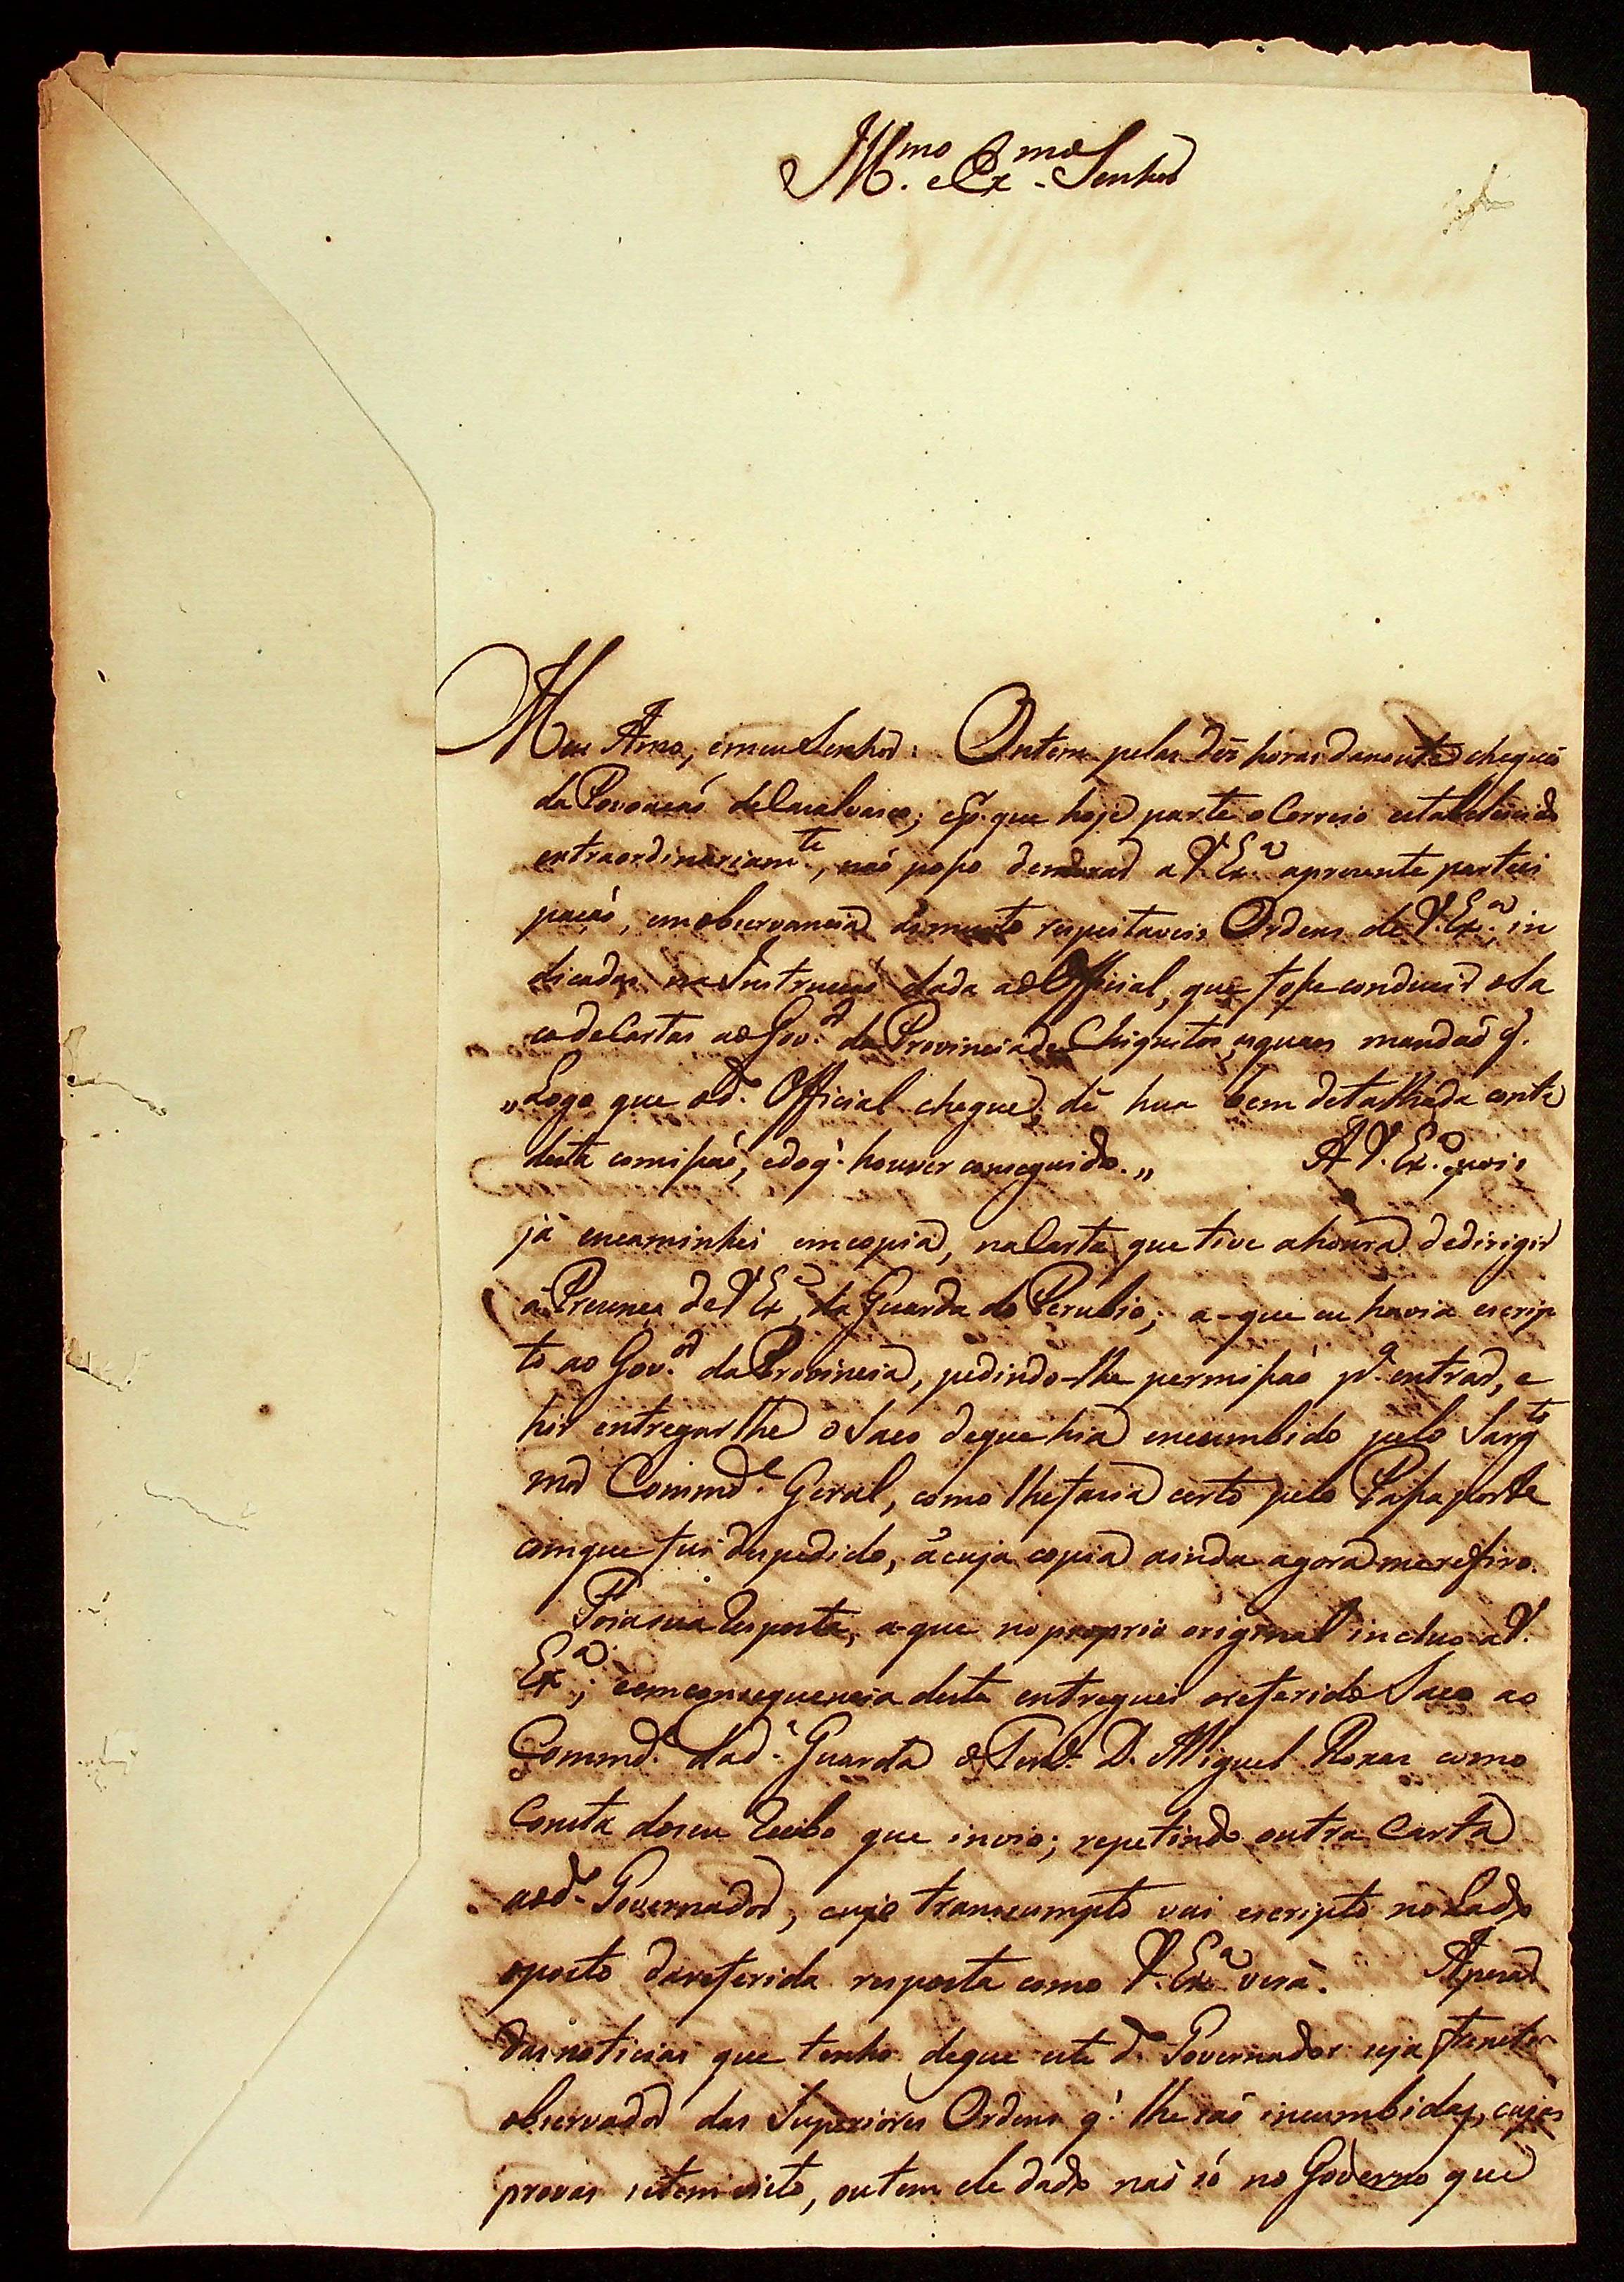 Ill.mo e Ex.mo Senhor
Meu Amo, e meu Senhor: Ontem pelas dés horas da noute cheguei
da Povoaçaõ de Casalvasco; e p.r que hoje parte o Correio estabelecido
extraordinariam.te, naõ posso demorar a V.Ex.a a prezente partici
paçaõ, em observancia ás muito respeitaveis Ordens de V.Ex.a, in
dicadas na Instrucçaõ dada ao Official, que fosse conduzir o Sa
co de Cartas ao Gov.or da Provincia de Chiquitos, as quaes mandaõ q.
„Logo que o d.o Official chegue, dê hua bem detalhada conta
desta comissaõ, e do q. houver conseguido.„ A V.Ex.a pois
já encaminhei em copia, na Carta que tive a honra de dirigir
á Prezença de V.Ex.a da Guarda do Perubio; a que eu havia escrip
to ao Gov.or da Provincia, pedindo-lhe permissaõ p.a entrar, e
hir entregar lhe o Saco de que hia encumbido pelo Sarg.to
mor Commd.e Geral, como lhe faria certo pelo Passaporte
com que fui despedido, á cuja copia ainda agora me refiro.
Foi a sua Resposta, a que no proprio original incluo a V.
Ex.a; e em consequencia desta entreguei o referido Saco ao
Commd.e da d.a Guarda o Ten.e D. Miguel Roxas como
consta do seu Recibo que invio; repetindo outra Carta
ao d.o Governador, cujo transumpto vai escripto no lado
oposto da referida resposta como V.Ex.a verá. Apezar
das noticias que tenho de que este d.o Governador seja
observador das Superiores Ordens q. lhe saõ incumbidas, cujas
provas se tem visto, ou tem ele dado naõ só no Governo que